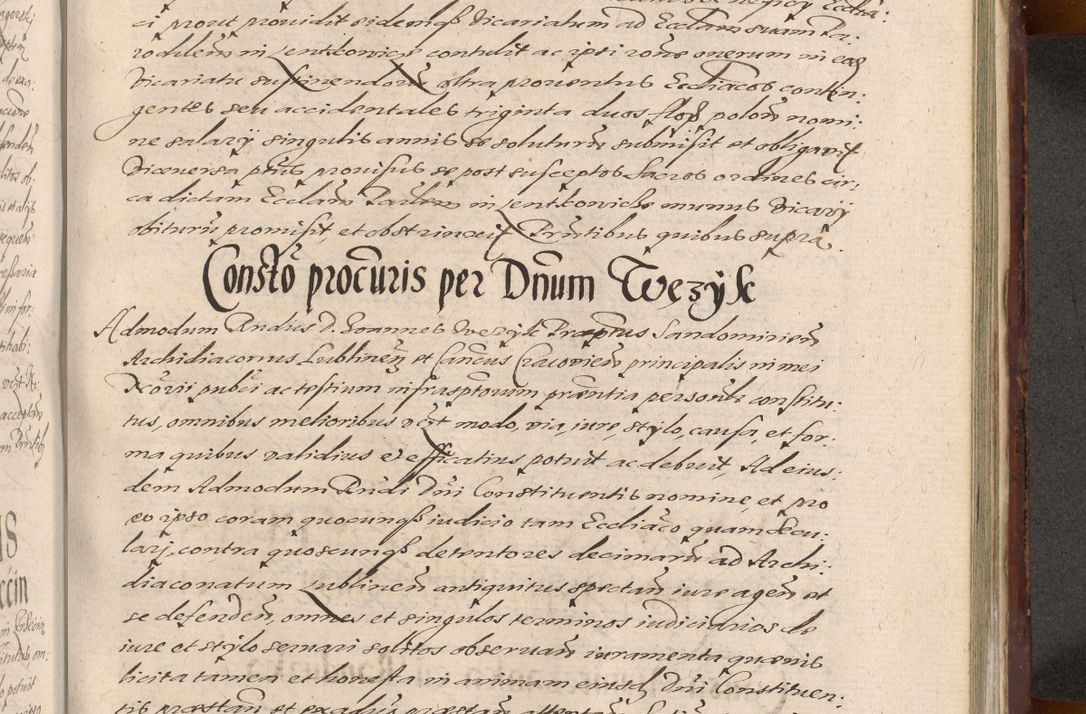 ci prout providit eidemqȝ Vicariatum ad Ecclam suam Pa:
rochilem in contulit ac ipsi rone onerum in eoȝ
Vicariatu sustinendorū ultra proventus Eccliacos contin:
gentes seu accidentales triginta duos flor polon nomi:
ne salarÿ singulis annis se soluturū submisit et obligavit
Viceversa pntis provisus se post susceptos sacros ordines cir:
ca dictam Ecclam Parlem in munus Vicarÿ
obiturū promisit, et obstrinxit Pntibus quibus supra
Constō procuris per Dnum Węzyk
Admodum Rndus D. Joannes Węzyk Praeptus Sandomirien
Archidiaconus Lublinen et Cancus Cracovien principalis in mei
Notrii publici ac testium infrascptorum prntia personlr constitu:
tus, omnibus melioribus modo, via, iure, stylo, causa, et for:
ma quibus validius et efficatius potuit ac debuit, Ad eius:
dem Admodum Rndi Dni Constituentis nomine, et pro
eo ipso coram quocunqȝ iudicio tam Eccliaco quam Secu:
lari, contra quoscunqȝ detentores decimarū ad Archi:
diaconatum Lublinen antiquitus spectan iure agen et
se defenden, omnes et singulos terminos iudiciarios de
iure et stylo servari solitos observan iuramenta quaevis
licita tamen et honesta in animam eiusd Dni Constituen: